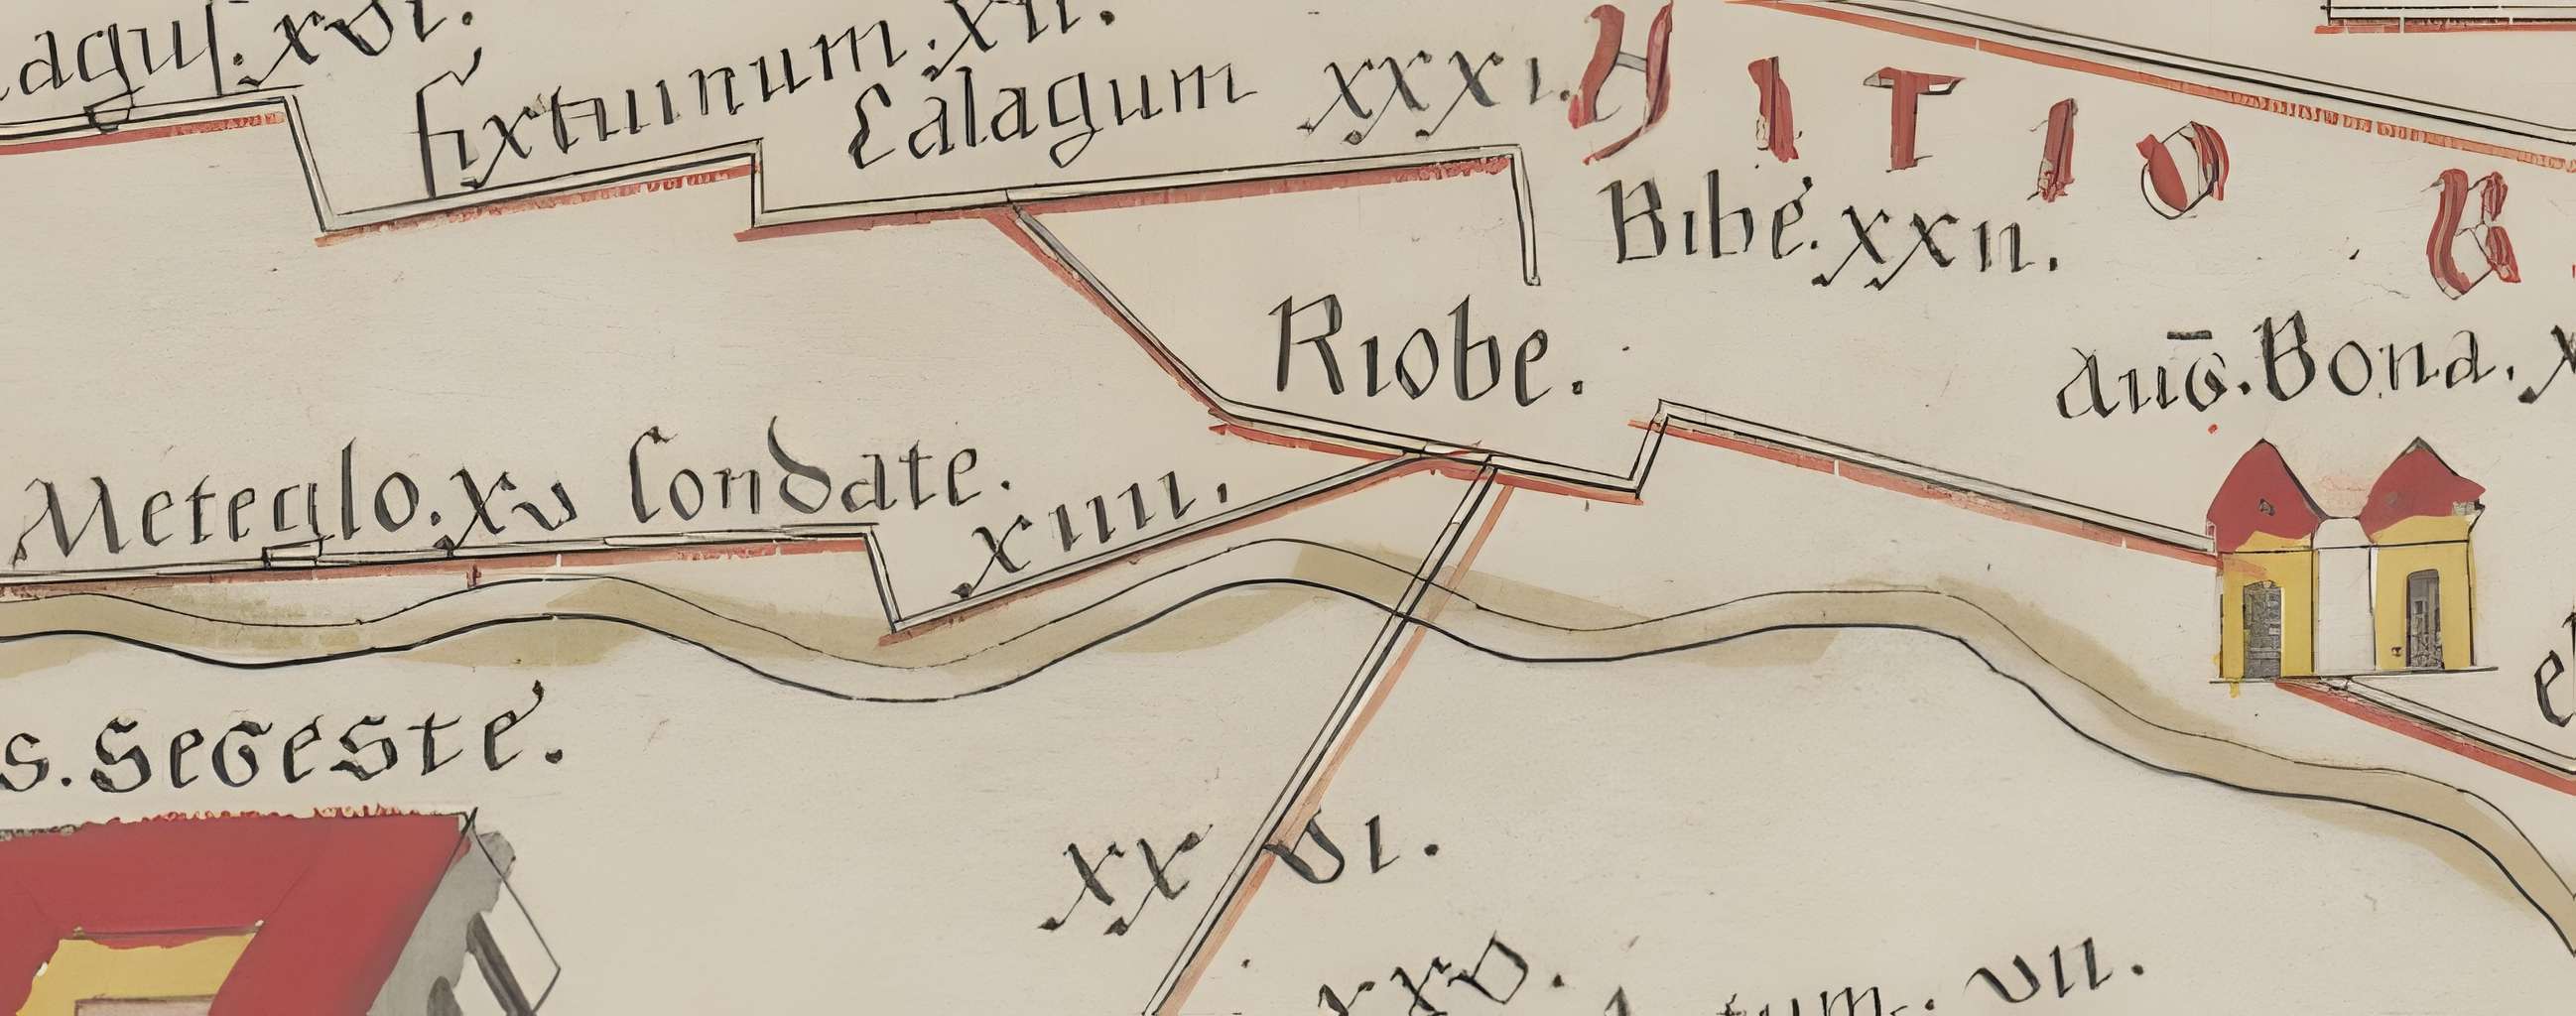 agus. xvi.
fixtuinnum. xii.
Calagum xxxi.
H I T I O R
Bibe. xxii.
Riobe.
auḡ. Bona. x
Meteglo. xv Condate.
xiiii.
s. Segeste.
xx vi.
xxv.
tum. vii.